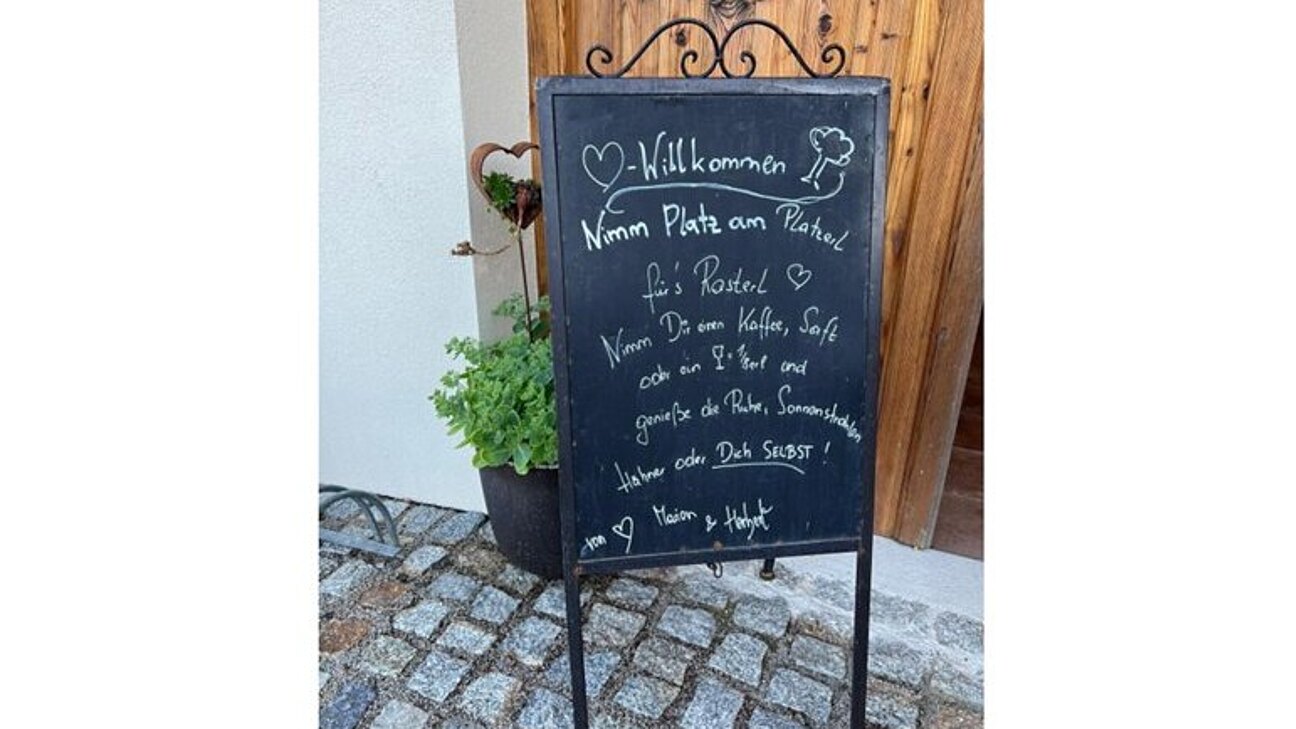 ♡-Willkommen
Nimm Platz am Platzerl
für's Rasterl ♡
Nimm Dir einen Kaffee, Saft
oder ein 1/8erl und
genieße die Ruhe, Sonnenstrahlen
Hühner oder Dich SELBST!
von ♡ Marion & Herbert